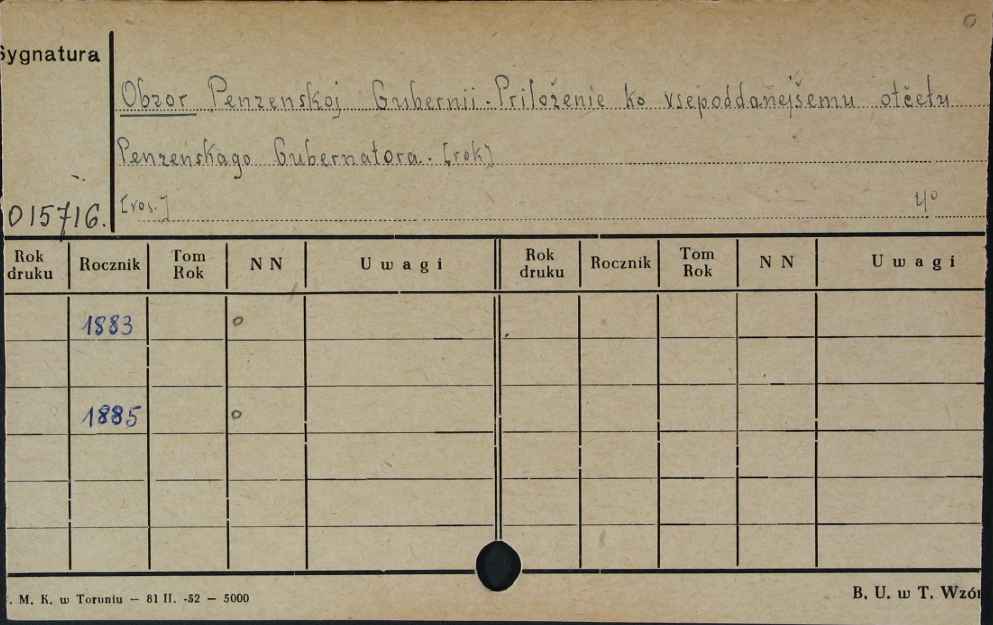 Sygnatura
Obzor Penzenskoj Gubernii. Priloženie ko vsepoddanejšemu otčetu
Penzenskago Gubernatora. [rok]
015716. [ros.] 4º
Rok druku Rocznik Tom Rok N N Uwagi Rok druku Rocznik Tom Rok N N Uwagi
1883 o
1885 o
. M. K. w Toruniu — 81 II. -52 — 5000 B. U. w T. Wzór